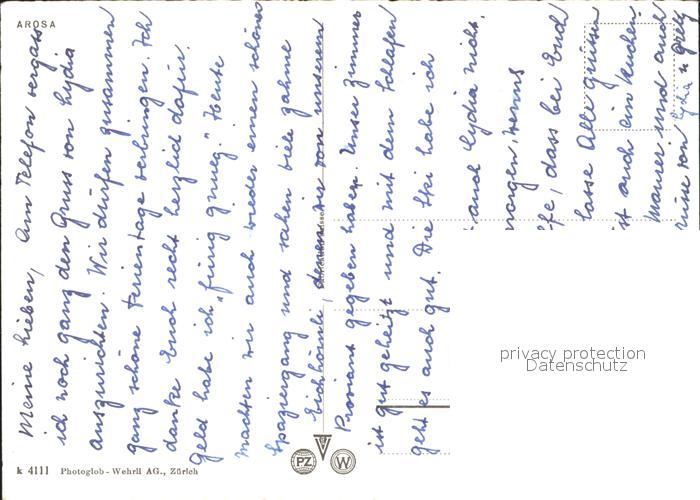 AROSA
Meine Lieben, Am Telefon vergass
ich noch ganz den Gruss von Lydia
auszurichten. Wir dürfen zusammen
ganz schöne Ferientage verbringen. Ich
danke Euch recht herzlich dafür.
Geld habe ich "fürig gnueg". Heute
machten wir auch wieder einen schönen
Spaziergang und sahen viele zahme
Eichhörnli, denen wir von unserem
Proviant gegeben haben. Unser Zimmer
ist gut geheizt und mit dem Schlafen
geht es auch gut. Die Ski habe ich
auch Lydia nicht.
morgen, wenns
ffe, dass bei Euch
lasse Alle grüssen
ist auch ein
Maurer und auch
von Lydia u. Grety
privacy protection
Datenschutz
k 4111 Photoglob-Wehrli AG., Zürich
PZ W